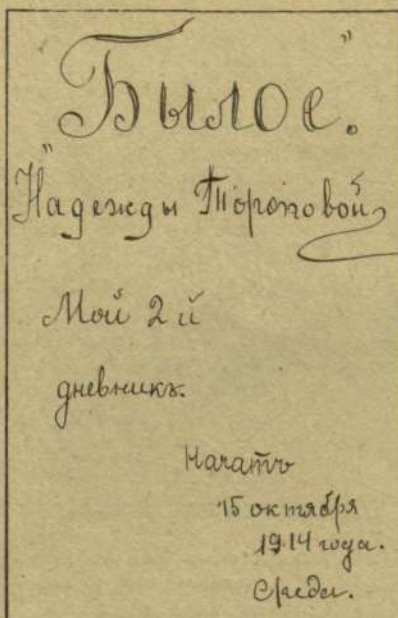 „Былое".
Надежды Тороповой
Мой 2й
дневникъ.
Начатъ
15 октября
1914 года.
Среда.